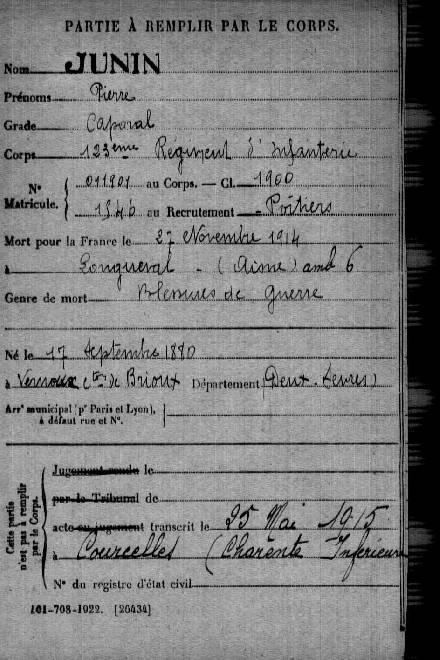 PARTIE À REMPLIR PAR LE CORPS.
Nom JUNIN
Prénoms Pierre
Grade Caporal
Corps 123ème Régiment d'Infanterie
N° Matricule. { 011901 au Corps. — Cl. 1900
1546 au Recrutement Poitiers
Mort pour la France le 27 Novembre 1914
à Longueval - (Aisne) amb 6
Genre de mort Blessures de guerre
Né le 17 Septembre 1880
à Vernoux cton de Brioux Département (Deux-Sèvres)
Arrt municipal (pr Paris et Lyon), à défaut rue et N°.
Cette partie n'est pas à remplir par le Corps.
Jugement rendu le
par le Tribunal de
acte ou jugement transcrit le 25 Mai 1915
à Courcelles (Charente Inférieure
N° du registre d'état civil
101-708-1922. [26434]